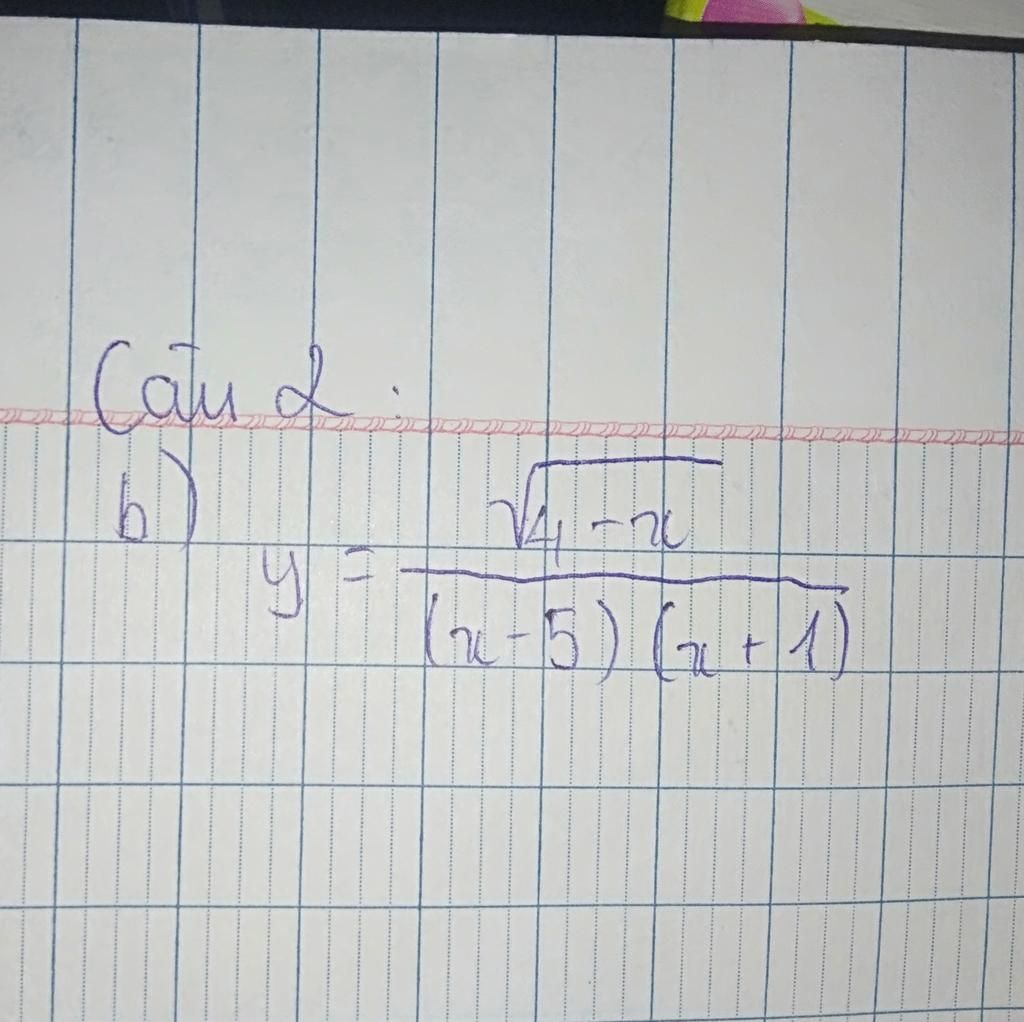 Câu 2 :
b) y = \frac{\sqrt{4-x}}{(x-5)(x+1)}